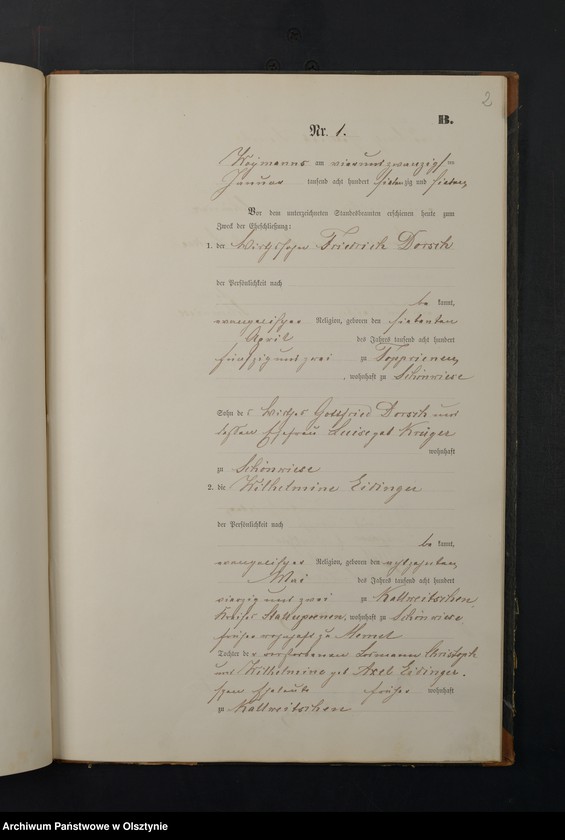 2
B.
Nr. 1.
am vierundzwanzigsten
Januar tausend acht hundert siebenzig und sieben
Vor dem unterzeichneten Standesbeamten erschienen heute zum
Zweck der Eheschließung:
1. der Wirthssohn Friedrich Dorsch
der Persönlichkeit nach
be kannt,
evangelischer Religion, geboren den siebenten
April des Jahres tausend acht hundert
fünfzig und zwei zu Topprienen
, wohnhaft zu Schönwiese
Sohn des Wirthes Gottfried Dorsch und
dessen Ehefrau Luise geb Krüger
wohnhaft
zu Schönwiese
2. die Wilhelmine Eidinger
der Persönlichkeit nach
be kannt,
evangelischer Religion, geboren den achtzehnten
Mai des Jahres tausend acht hundert
vierzig und zwei zu Kallweitschen
Kreises Stallupoenen, wohnhaft zu Schönwiese,
früher wohnhaft zu Memel
Tochter der verstorbenen Christoph
und Wilhelmine geb Axel Eidinger
schen Eheleute früher wohnhaft
zu Kallweitschen
Archiwum Państwowe w Olsztynie